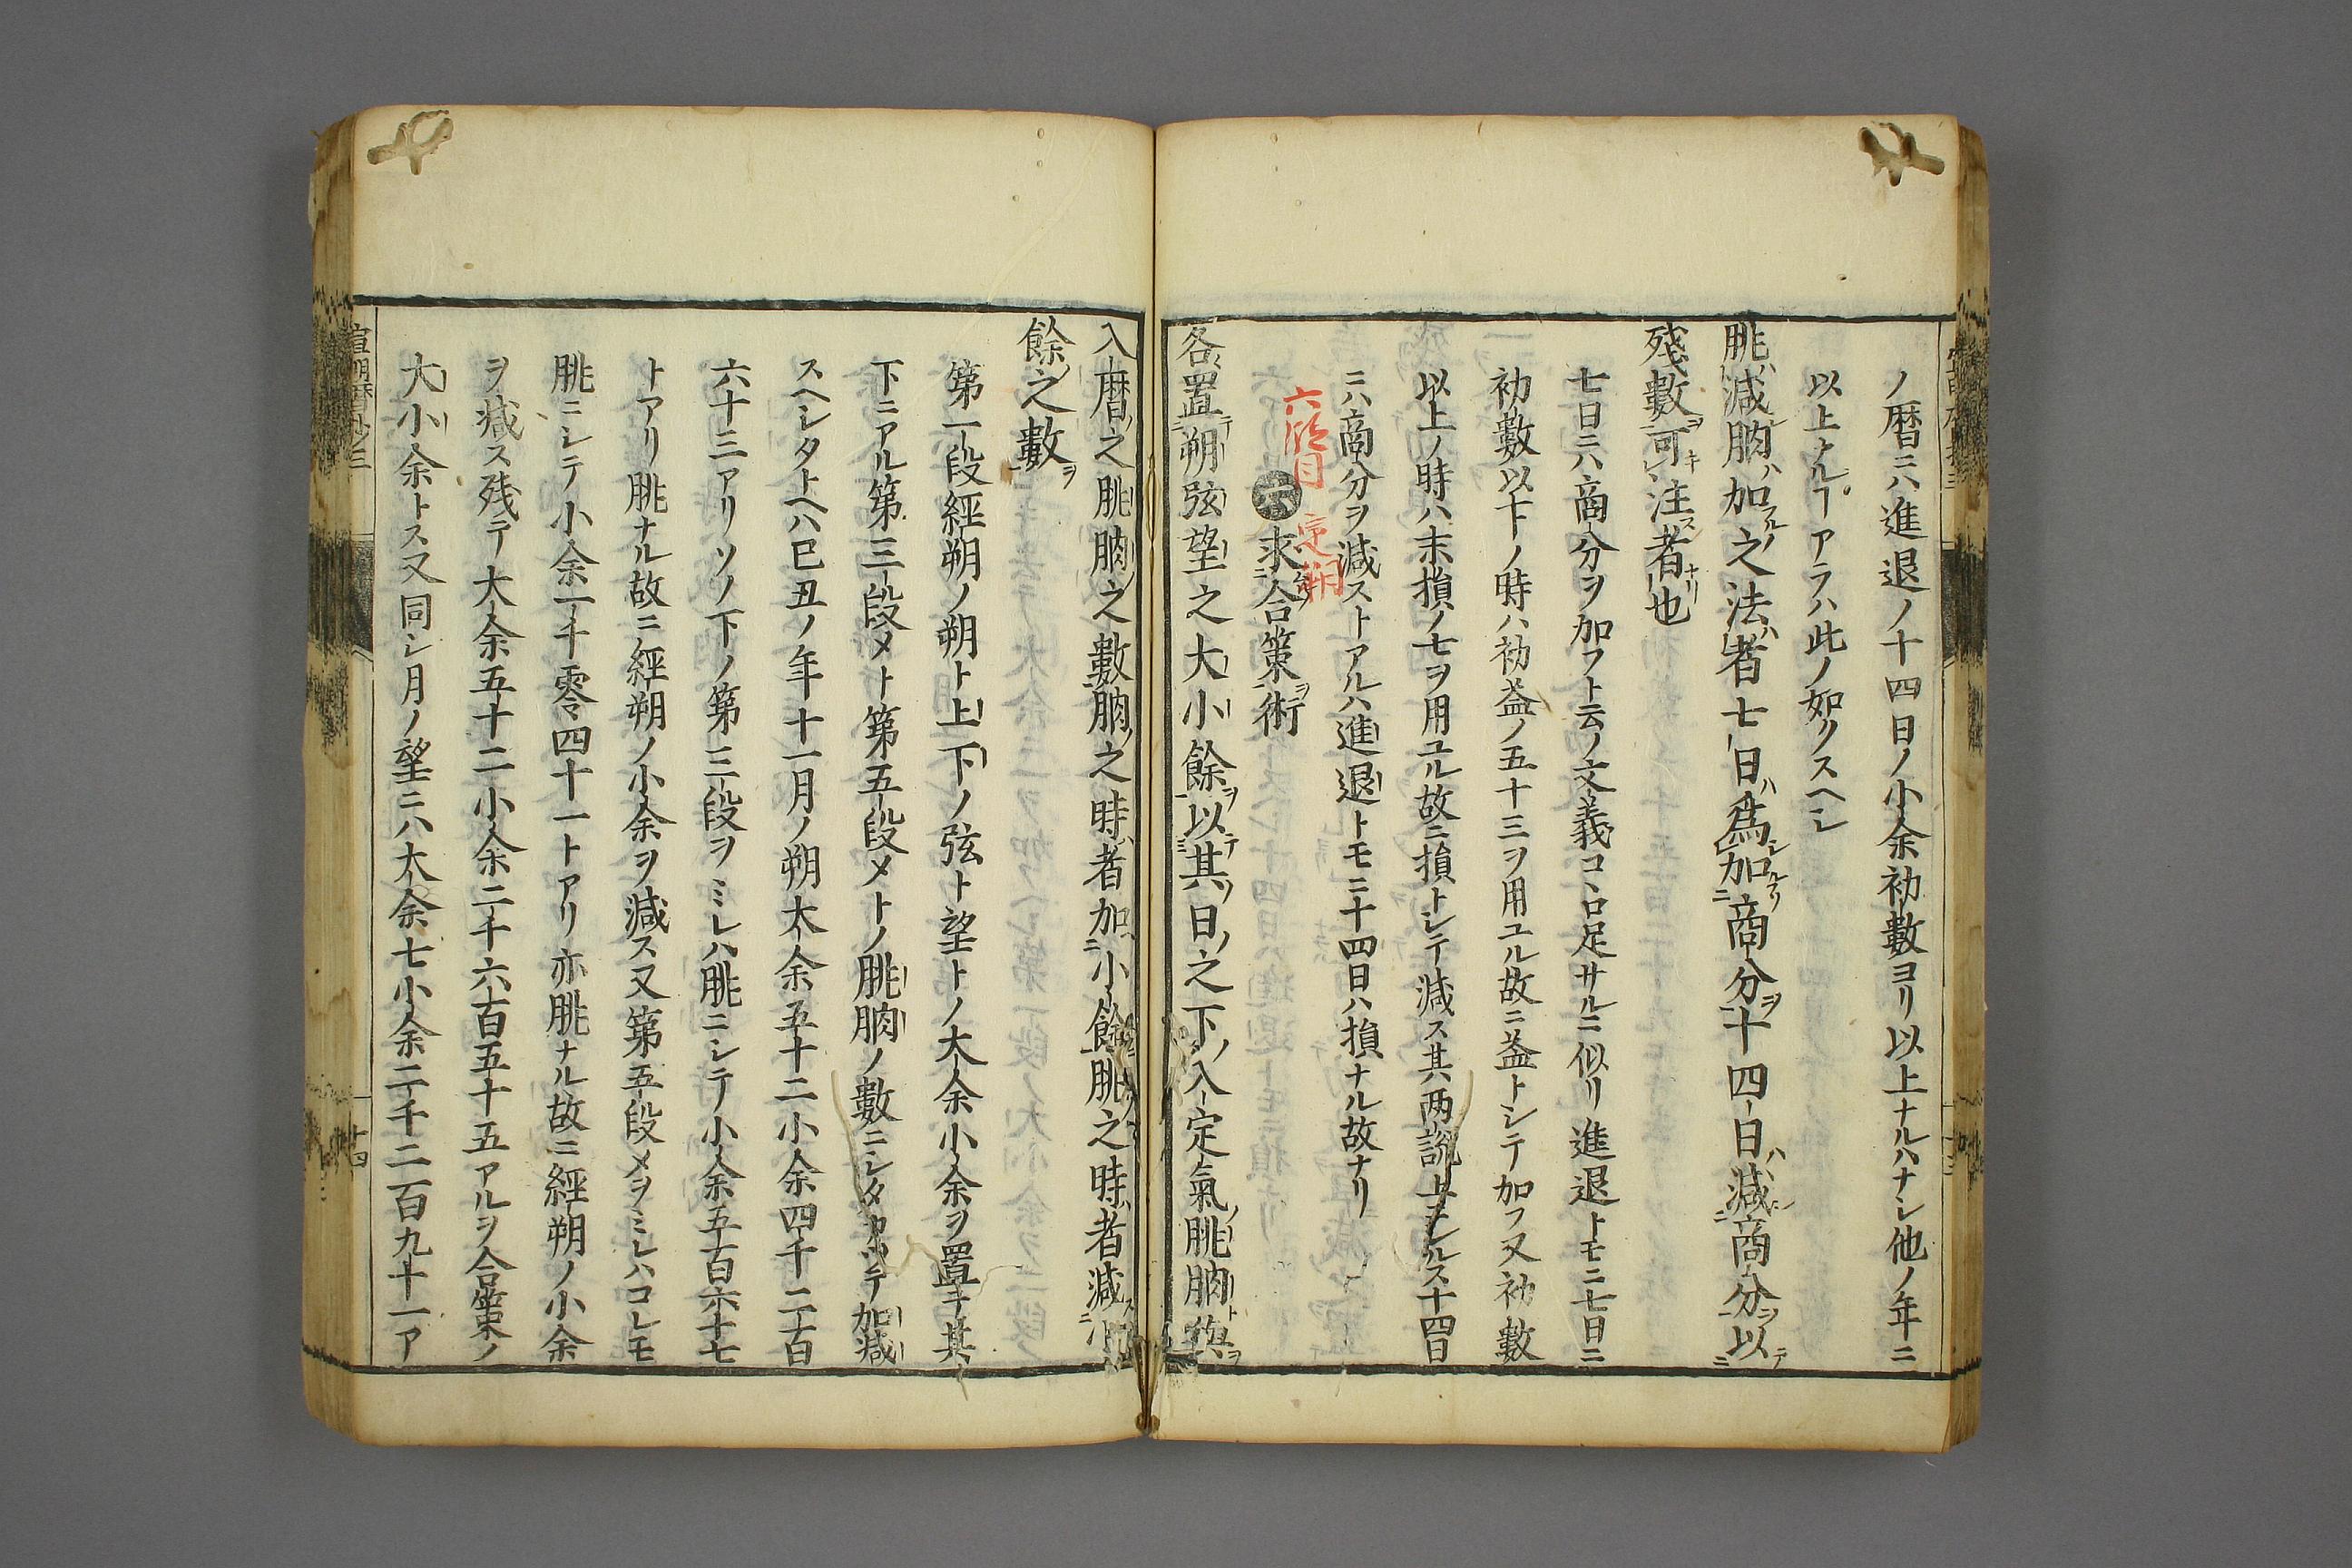 ノ暦ニハ進退ノ十四日ノ小余初數ヨリ以上ナルハナシ他ノ年ニ
以上ナルヿアラハ此ノ如クスヘシ
朓減朒加之法者七日為加商分十四日減商分以
殘數可注者也
七日ニハ商分ヲ加フト云ノ文義コヽロ足サルニ似リ進退トモニ七日ニ
初數以下ノ時ハ初益ノ五十三ヲ用ユル故ニ益トシテ加フ又初數
以上ノ時ハ末損ノ七ヲ用ユル故ニ損トシテ減ス其两說上ニシルス十四日
ニハ商分ヲ減ストアルハ進退トモニ十四日ハ損ナル故ナリ
六段目 定朔
六求合策術
各置朔弦望之大小餘以其日之下入定氣朓朒與
入暦之朓朒之數朒之時者加小餘朓之時者減小
餘之數
第一段經朔ノ朔ト上下ノ弦ト望トノ大余小余ヲ置キ其
下ニアル第三段メト第五段メトノ朓朒ノ數ニシタカツテ加減
スヘシタトヘハ巳丑ノ年十一月ノ朔大余五十二小余四千二百
六十三アリソノ下ノ第三段ヲミレハ朓ニシテ小余五百六十七
トアリ朓ナル故ニ經朔ノ小余ヲ減ス又第五段メヲミレハコレモ
朓ニシテ小余一千零四十一トアリ亦朓ナル故ニ經朔ノ小余
ヲ減ス残テ大余五十二小余二千六百五十五アルヲ合策ノ
大小余トス又同シ月ノ望ニハ大余七小余二千二百九十一ア
宣明暦抄三
十四